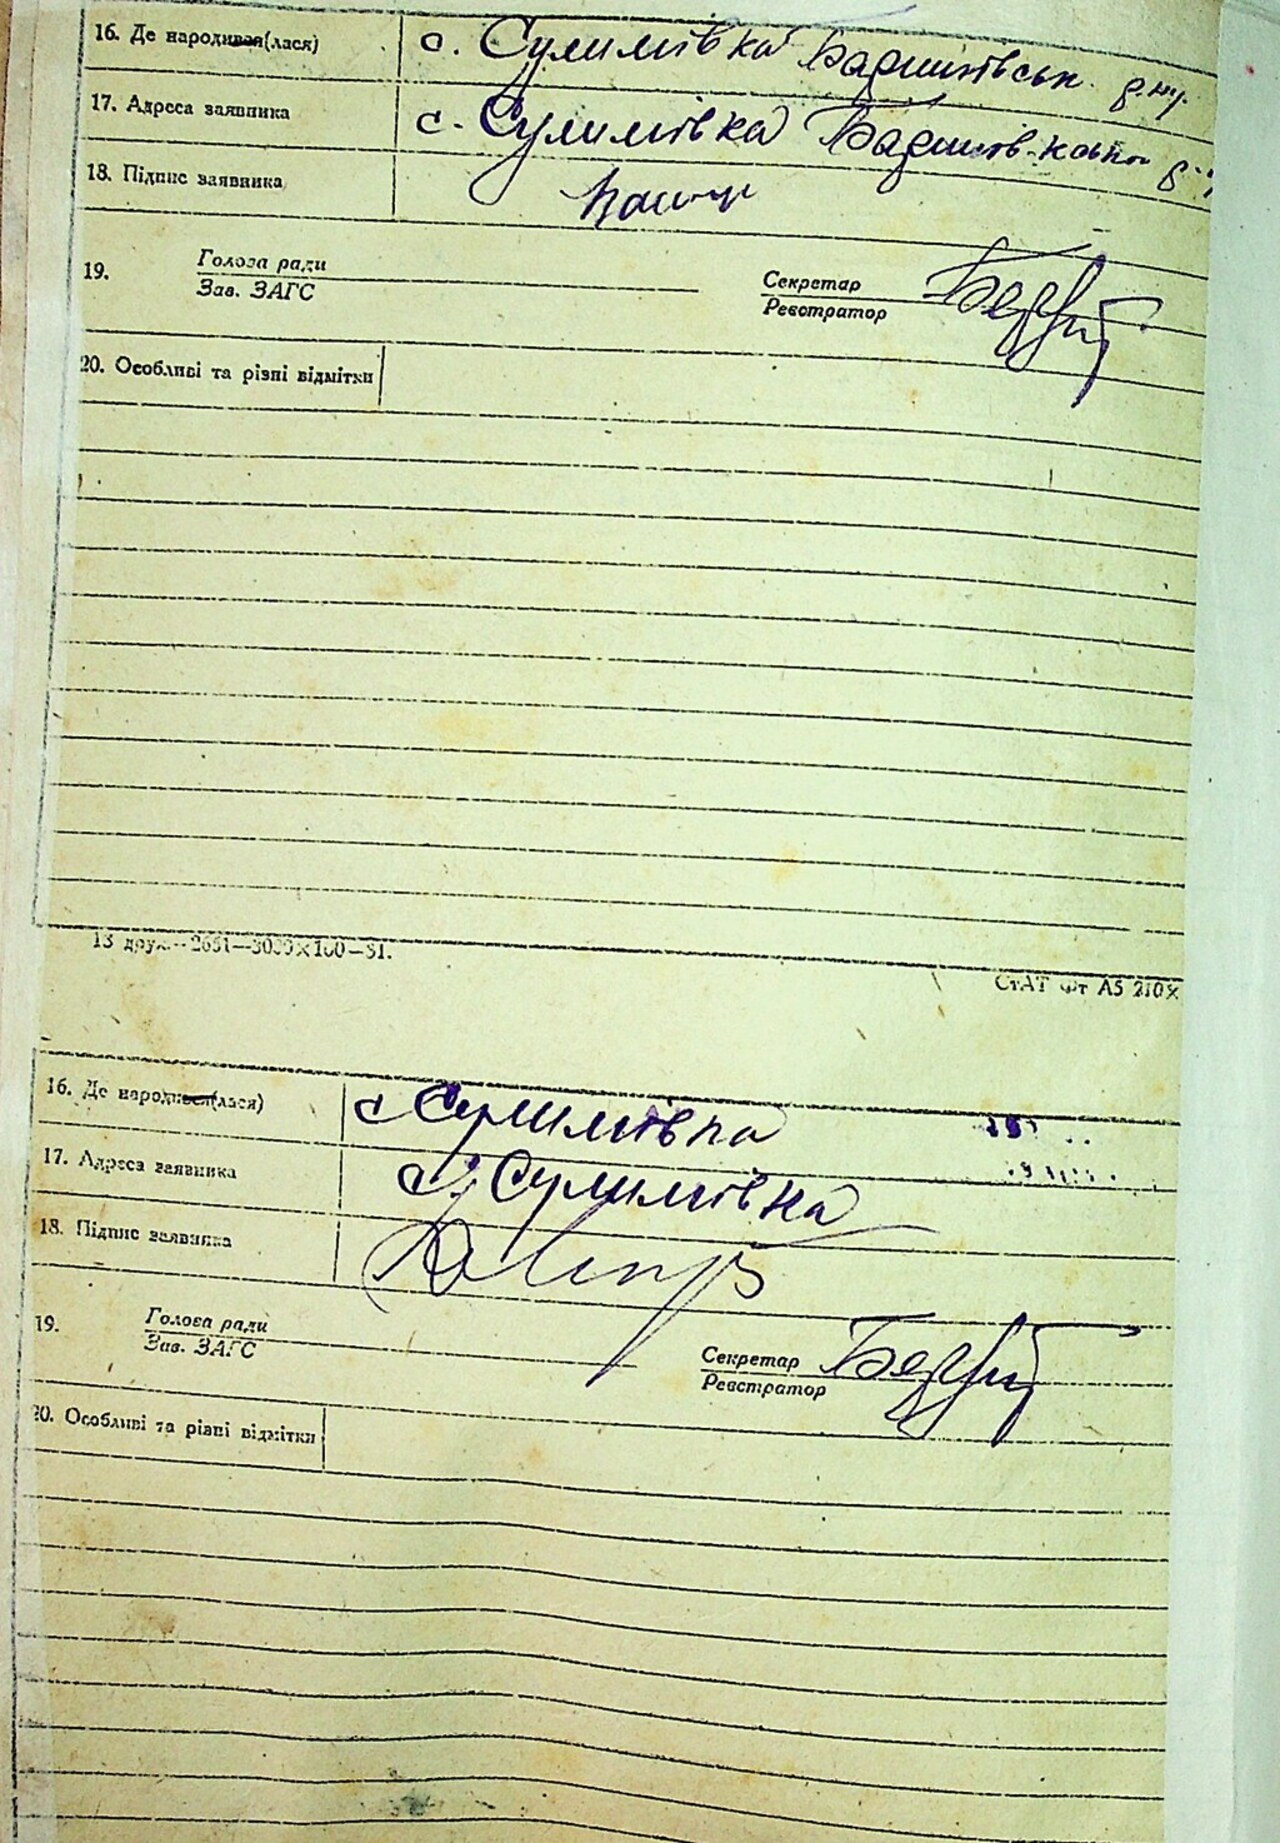 16. Де народився(лася) с. Сулимівка Баришівськ.
17. Адреса заявника с. Сулимівка
18. Підпис заявника
19. Голова ради
Зав. ЗАГС
Секретар
Реєстратор
20. Особливі та різні відмітки
СтАТ Фт А5 210×
16. Де народився(лася) с Сулимівка
17. Адреса заявника с. Сулимівка
18. Підпис заявника
19. Голова ради
Зав. ЗАГС
Секретар
Реєстратор
20. Особливі та різні відмітки